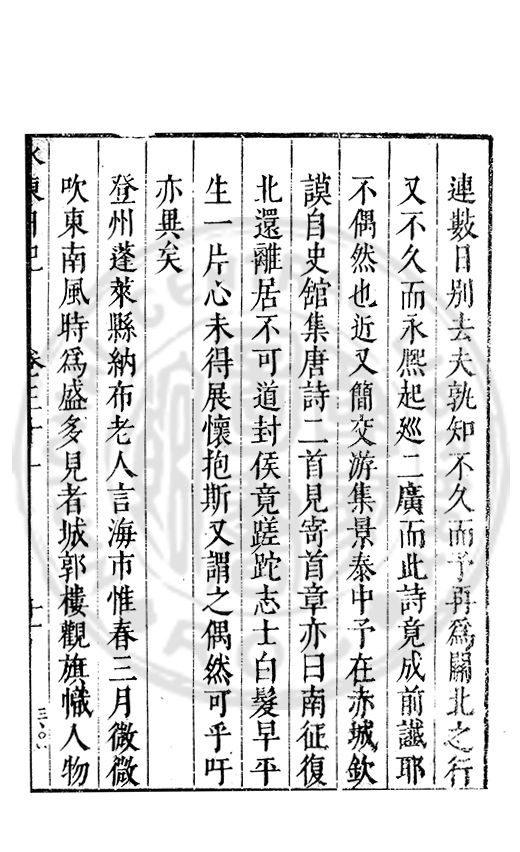 連數日別去夫孰知不久而予再爲關北之行
又不久而永熈起廵二廣而此詩竟成前讖耶
不偶然也近又簡交游集景泰中予在赤城欽
謨自史館集唐詩二首見寄首章亦曰南征復
北還離居不可道封侯竟蹉跎志士白髮早平
生一片心未得展懷抱斯又謂之偶然可乎吁
亦異矣
登州蓬萊縣納布老人言海市惟春三月微微
吹東南風時爲盛多見者城郭樓觀旗幟人物
水東日記 卷三十一